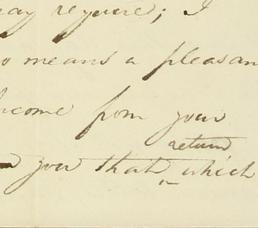 may require; I
no means a pleasan
income from your
return
you that, which